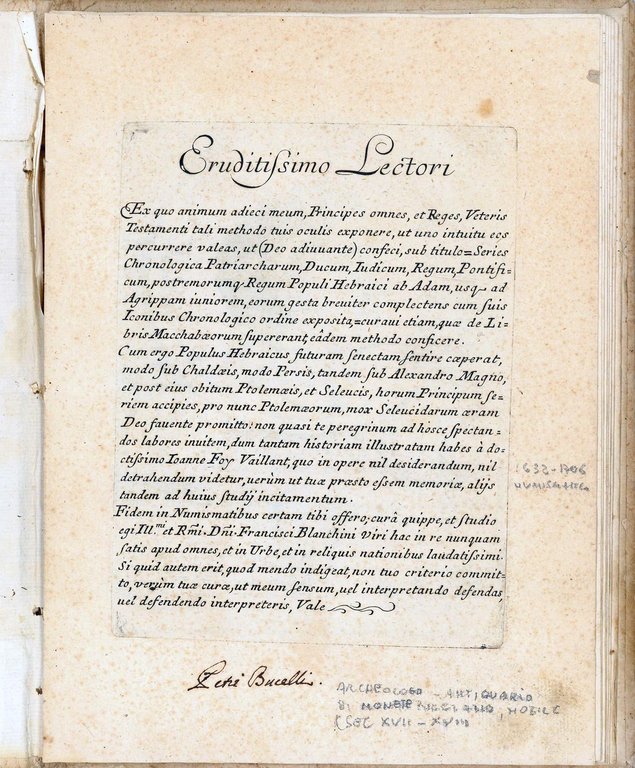 Eruditiſsimo Lectori
Ex quo animum adieci meum, Principes omnes, et Reges, Veteris
Testamenti tali methodo tuis oculis exponere, ut uno intuitu eos
percurrere valeas, ut (Deo adiuuante) confeci, sub titulo=Series
Chronologica Patriarcharum, Ducum, Iudicum, Regum, Pontifi-
cum, postremorumq; Regum Populi Hebraici ab Adam, usq; ad
Agrippam iuniorem, eorum gesta breuiter complectens cum suis
Iconibus Chronologico ordine exposita,=curaui etiam, quæ de Li-
bris Macchabæorum supererant, eâdem methodo conficere.
Cum ergo Populus Hebraicus futuram senectam, ſentire cæperat,
modo ſub Chaldæis, modo Persis, tandem ſub Alexandro Magno,
et post eius obitum Ptolemæis, et Seleucis, horum Principum ſe-
riem accipies, pro nunc Ptolemæorum, mox Seleucidarum æram
Deo fauente promitto: non quasi te peregrinum ad hosce ſpectan-
dos labores inuitem, dum tantam historiam illustratam habes à do-
ctiſsimo Ioanne Foy Vaillant, quo in opere nil desiderandum, nil
detrahendum videtur, uerùm ut tuæ præsto eſsem memoriæ, alijs
tandem ad huius ſtudij incitamentum.
Fidem in Numismatibus certam tibi offero; curâ quippe, et ſtudio
egi Ill.mi et Rm̃i. Dñi. Francisci Blanchini viri hac in re nunquam
ſatis apud omnes, et in Urbe, et in reliquis nationibus laudatiſsimi.
Si quid autem erit, quod mendo indigeat, non tuo criterio commit-
to, verùm tuæ curæ, ut meum ſensum, uel interpretando defendas,
uel defendendo interpreteris, Vale
1632-1706
NUMISMATICO
Petri Bucelli.
ARCHEOLOGO - ANTIQUARIO
DI MONETE NOBILE
(SEC XVII - XVIII